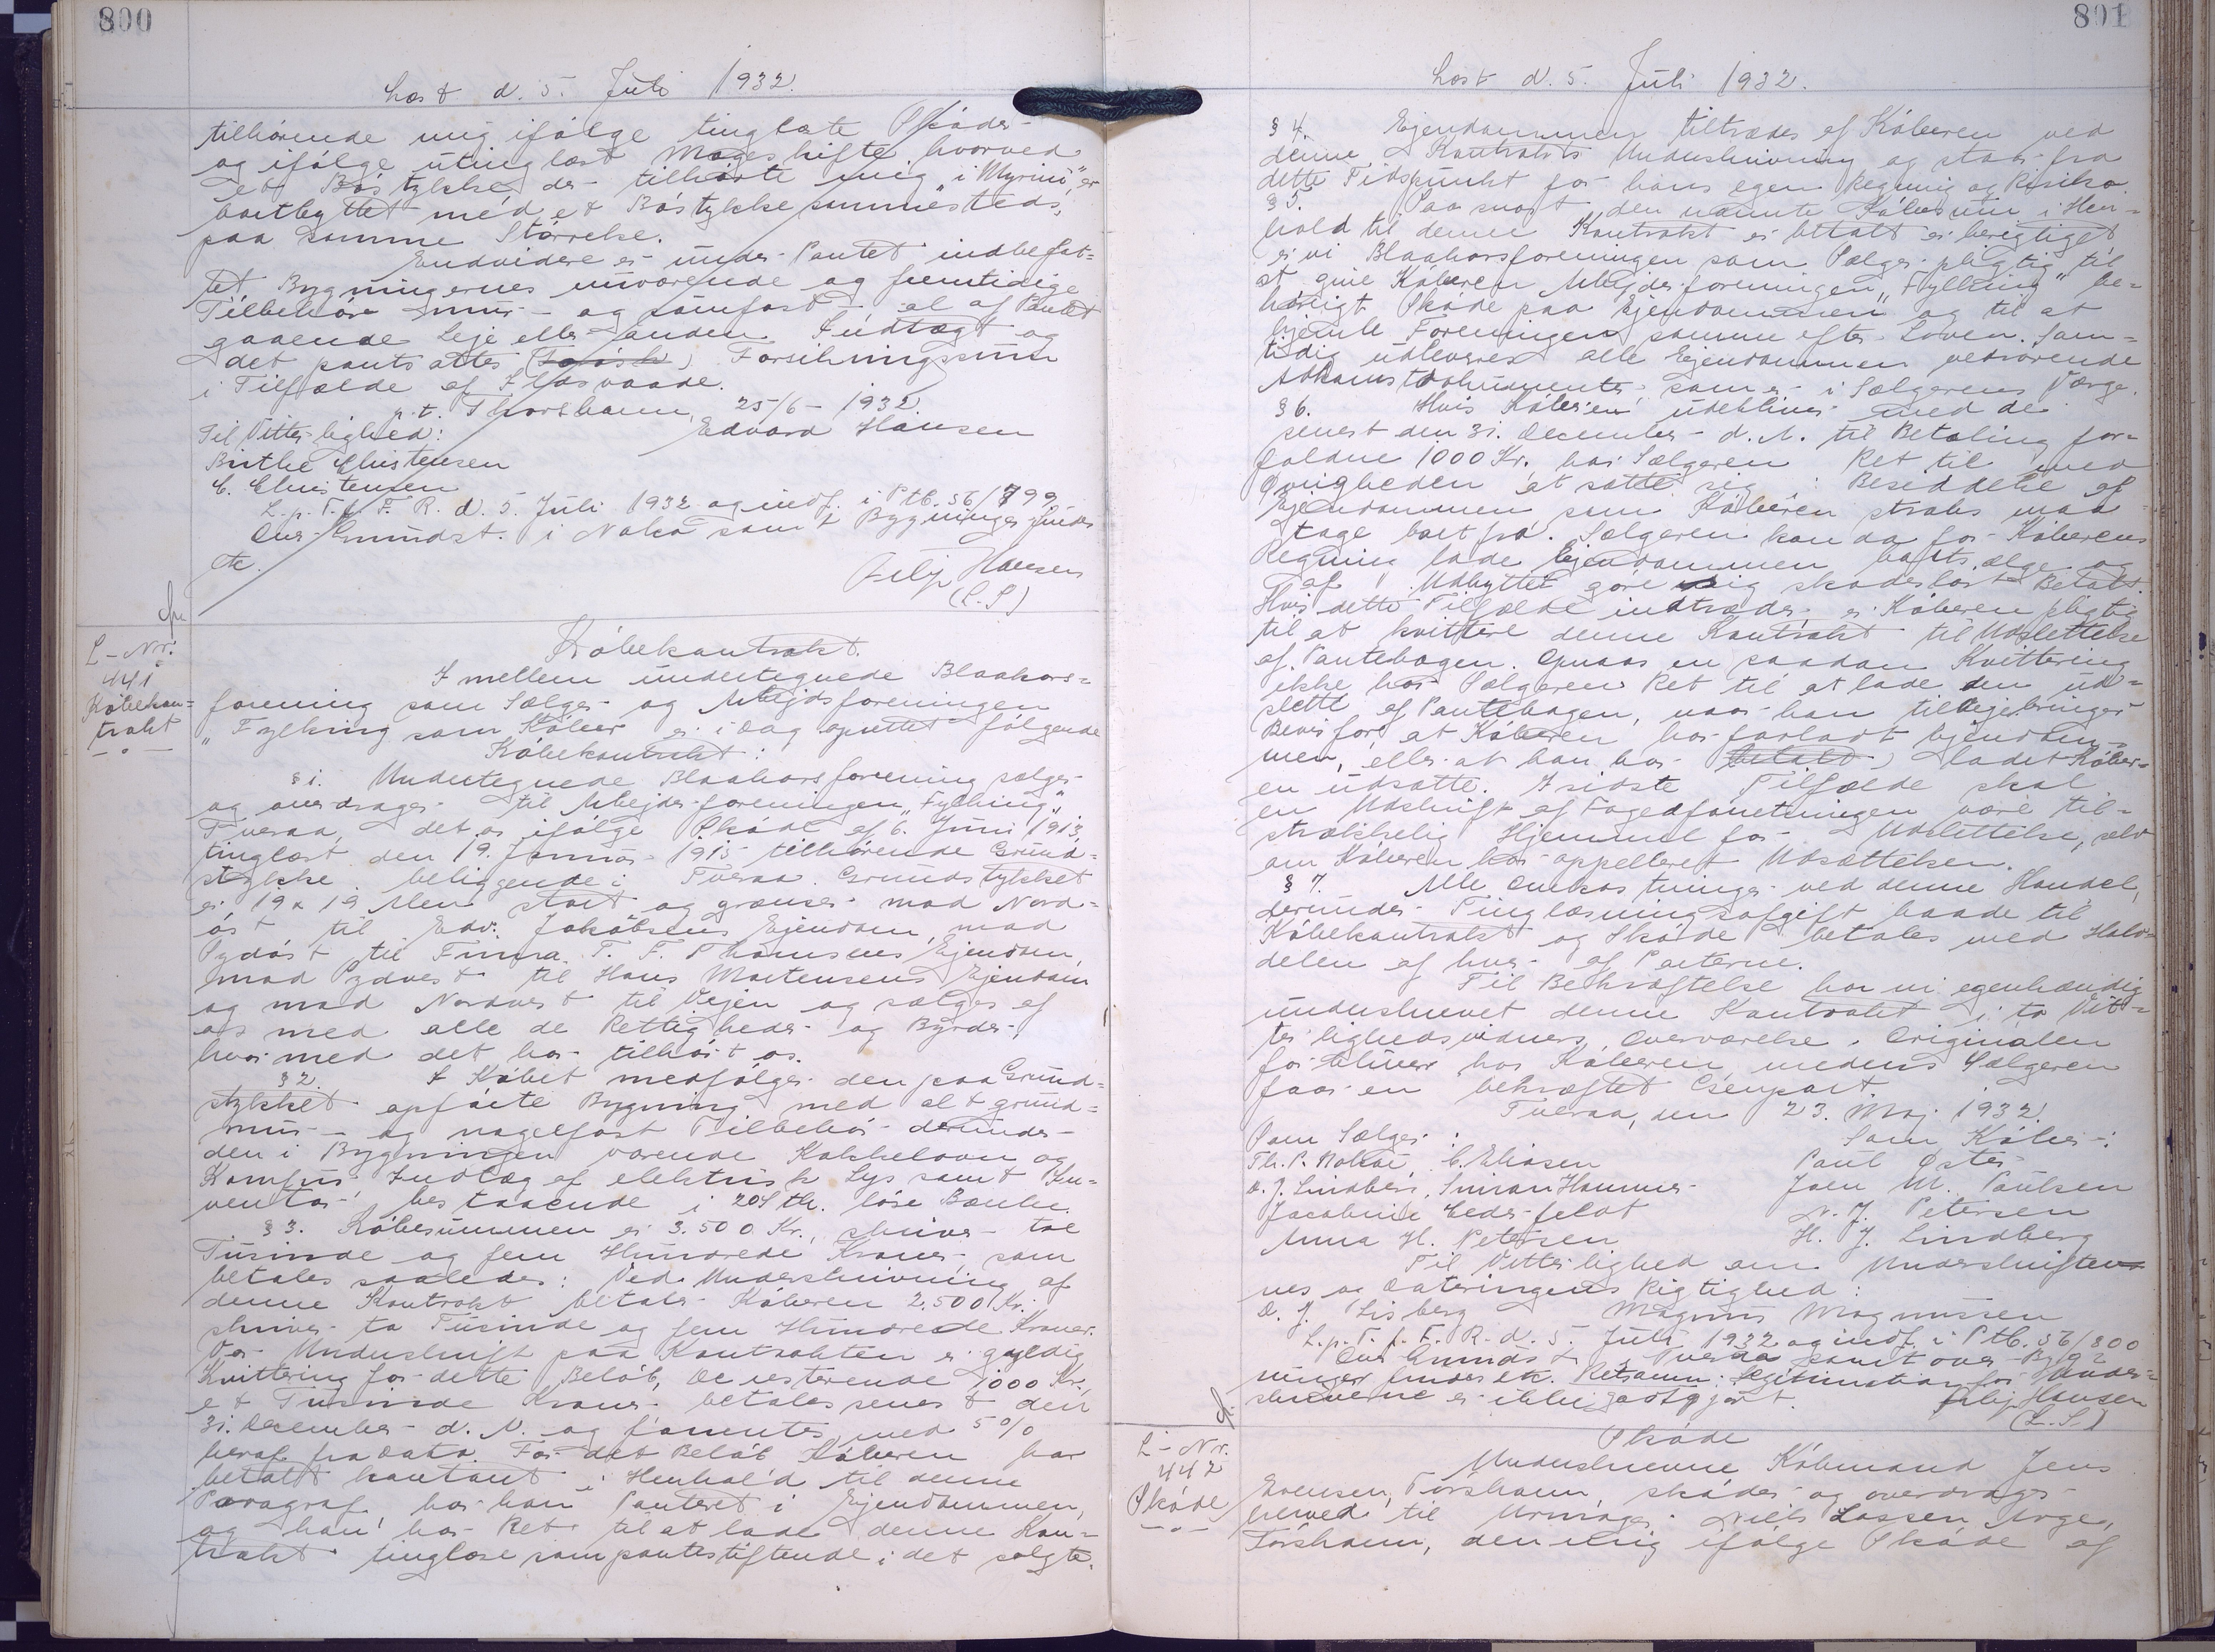 800
Læst d. 5. Juli 1932.
tilhörende mig ifölge tinglæste Sköder
og ifölge utinglæst Mageskifte, hvorved
et Böstykke der tilhörte mig "i Myrini", er
bortbyttet med et Böstykke sammesteds,
paa samme Störrelse.
Endvidere er under Pantet indbefat=
tet Bygningernes nuværende og fremtidige
Tilbehör mur- og sömfast - al af Pantet
gaaende Leje eller anden Indtægt og
det pantsattes Forsikringssum
i Tilfælde af Ildsvaade.
p.t. Thorshavn, 25/6 - 1932
Til Vitterlighed: Edvard Hansen
Birthe Christensen
C. Christensen
L. p. T. f. F. R. d. 5. Juli 1932 og indf. i Ptb. 36/799
Ovr. Grundst. i Nolsö samt Bygninger findes
etc.
Filip Hansen
(L.S.)
L-Nr.
441
Köbekon=
trakt
Köbekontrakt.
Imellem undertegnede Blaakors=
forening som Sælger og Arbejdsforeningen
"Fylking" som Köber er i Dag oprettet följgende
Köbekontrakt:
§ 1. Undertegnede Blaakorsforening sælger
og overdrager til Arbejderforeningen "Fylking",
Tveraa, det os ifölge Sköde af 6. Juni 1913,
tinglæst den 19. Januar 1915 tilhörende Grund=
stykke beliggende i Tveraa. Grundstykket
er 19 x 19 Alen stort og grænser mod Nord=
öst til Edv. Jakobsens Ejendom, mod
Sydöst til Firma T. F. Thomsens Ejendom,
mod Sydvest til Hans Mortensens Ejendom
og mod Nordvest til Vejen og sælges af
os med alle de Rettigheder og Byrder,
hvormed det har tilhört os.
§ 2. I Köbet medfölger den paa Grund=
stykket opförte Bygning med alt grund=
mur- og nagelfast Tilbehör derunder
den i Bygningen værende Kakkelovn og
Komfur, Indlæg af elektrisk Lys samt In=
ventar, bestaaende i 20 Stk. löse Bænke.
§ 3. Köbesummen er 3.500 Kr., skriver tre
Tusinde og fem Hundrede Kroner, som
betales saaledes: Ved Underskrivning af
denne Kontrakt betaler Köberen 2.500 Kr.,
skriver to Tusinde og fem Hundrede Kroner.
Vor Underskrift paa Kontrakten er gyldig
Kvittering for dette Belöb, De resterende 1000 Kr.,
et Tusinde Kroner betales senest den
31. December d. A. og forrentes med 5%
heraf fra Dato. For det Belöb Köberen har
betalt kontant i Henhold til denne
Paragraf har han Panteret i Ejendommen,
og han har Ret til at lade denne Kon=
trakt tinglæse som pantestiftende i det solgte.
801
Læst d. 5. Juli 1932.
§ 4. Ejendommen tiltrædes af Köberen ved
denne Kontrakts Underskrivning og staar fra
dette Tidspunkt for hans egen Regning og Risiko.
§ 5. Saa snart den nævnte Köbesum i Hen=
hold til denne Kontrakt er betalt er berigtiget
er vi Blaakorsforeningen som Sælger pligtig til
at give Köberen Arbejderforeningen "Fylking" be=
hörigt Sköde paa Ejendommen og til at
hjemle Foreningen samme efter Loven. Sam=
tidig udleveres alle Ejendommen vedrörende
Adkomstdokumenter, som er i Sælgerens Værge.
§ 6. Hvis Köberen udebliver med de
senest den 31. December d. A. til Betaling for=
faldne 1000 Kr. har Sælgeren Ret til med
Övrigheden at sætte sig i Besiddelse af
Ejendommen som Köberen straks maa
tage bort fra. Sælgeren kan da for Köberens
Regning lade Ejendommen bortsælge og
af Udbyttet göre sig skadeslöst Betalt.
Hvis dette Tilfælde indtræder er Köberen pligtig
til at kvittere denne Kontrakt til Udslettelse
af Pantebogen. Opnaas en saadan Kvittering
ikke har Sælgeren Ret til at lade den ud=
slette af Pantebogen, naar han tilvejebringer
Bevis for, at Köberen har forladt Ejendom=
men, eller at han har ladet Köber=
en udsætte. I sidste Tilfælde skal
en Udskrift af Fogedforretningen være til=
strækkelig Hjemmel for Udslettelse, selv
om Köberen har appelleret Udsættelsen.
§ 7. Alle Omkostninger ved denne Handel,
derunder Tinglæsningsafgift baade til
Köbekontrakt og Sköde betales med Halv=
delen af hver af Parterne.
Til Bekræftelse har vi egenhændig
underskrevet denne Kontrakt i to Vit=
terlighedsvidners Overværelse. Originalen
forbliver hos Köberen medens Sælgeren
faar en bekræftet Genpart.
Tveraa, den 23. Maj 1932.
Som Sælger: Som Köber:
Th. P. Nolsöe, C. Eliasen Poul Öster
D. J. Lindberg, Simian Hammer Joen M. Poulsen
Jacobine Cederfeldt N. J. Petersen
Anna H. Petersen H. J. Lindberg
Til Vitterlighed om Underskrifter=
nes og Dateringens Rigtighed:
D. J. Lisberg Magnus Magnussen
L. p. T. f. F. R. d. 5. Juli 1932 og indf. i Ptb. 36/800
Ovr. Grundst. i Tveraa samt over Byg=
ninger findes ek. Retsanm: Legitimation for Under=
skriverne er ikke godtgjort. Filip Hansen
(L.S.)
L-Nr.
442
Sköde
Sköde
Underskrevne Köbmand Jens
Evensen, Tórshavn, sköder og overdrager
herved til Urmager Niels Lassen Arge,
Tórshavn, den mig ifölge Sköde af